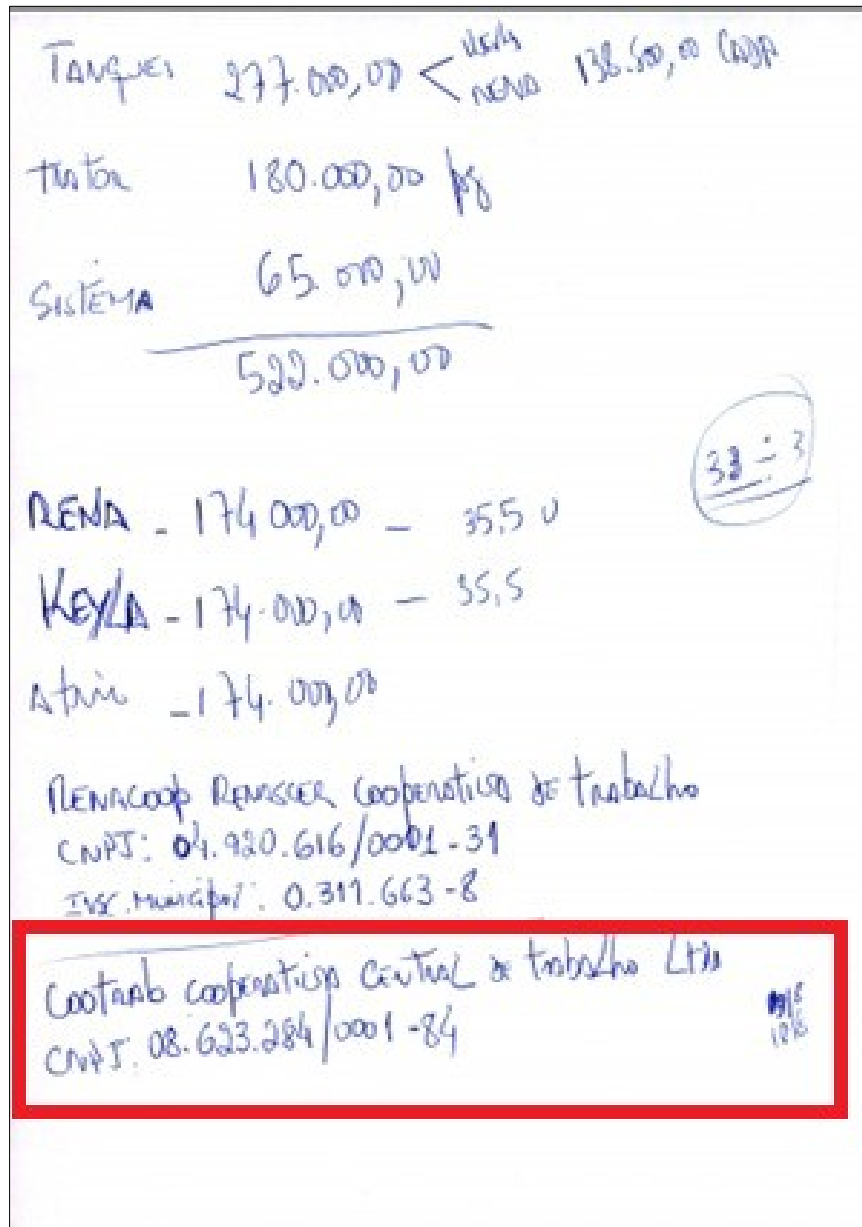 TANQUES 277.000,00 < NENA 138.500,00 CADA
trator 180.000,00 pg
SISTÉMA 65.000,00
522.000,00
÷ 3
RENA - 174 000,00 - 35,5
KEYLA - 174.000,00 - 35,5
- 174.000,00
RENACOOP RENASCER COOPERATIVA DE trabalho
CNPJ: 04.920.616/0001-31
INSC. Municipal: 0.311.663-8
Cootrab cooperativa Central de trabalho Ltda
CNPJ: 08.623.284/0001-84